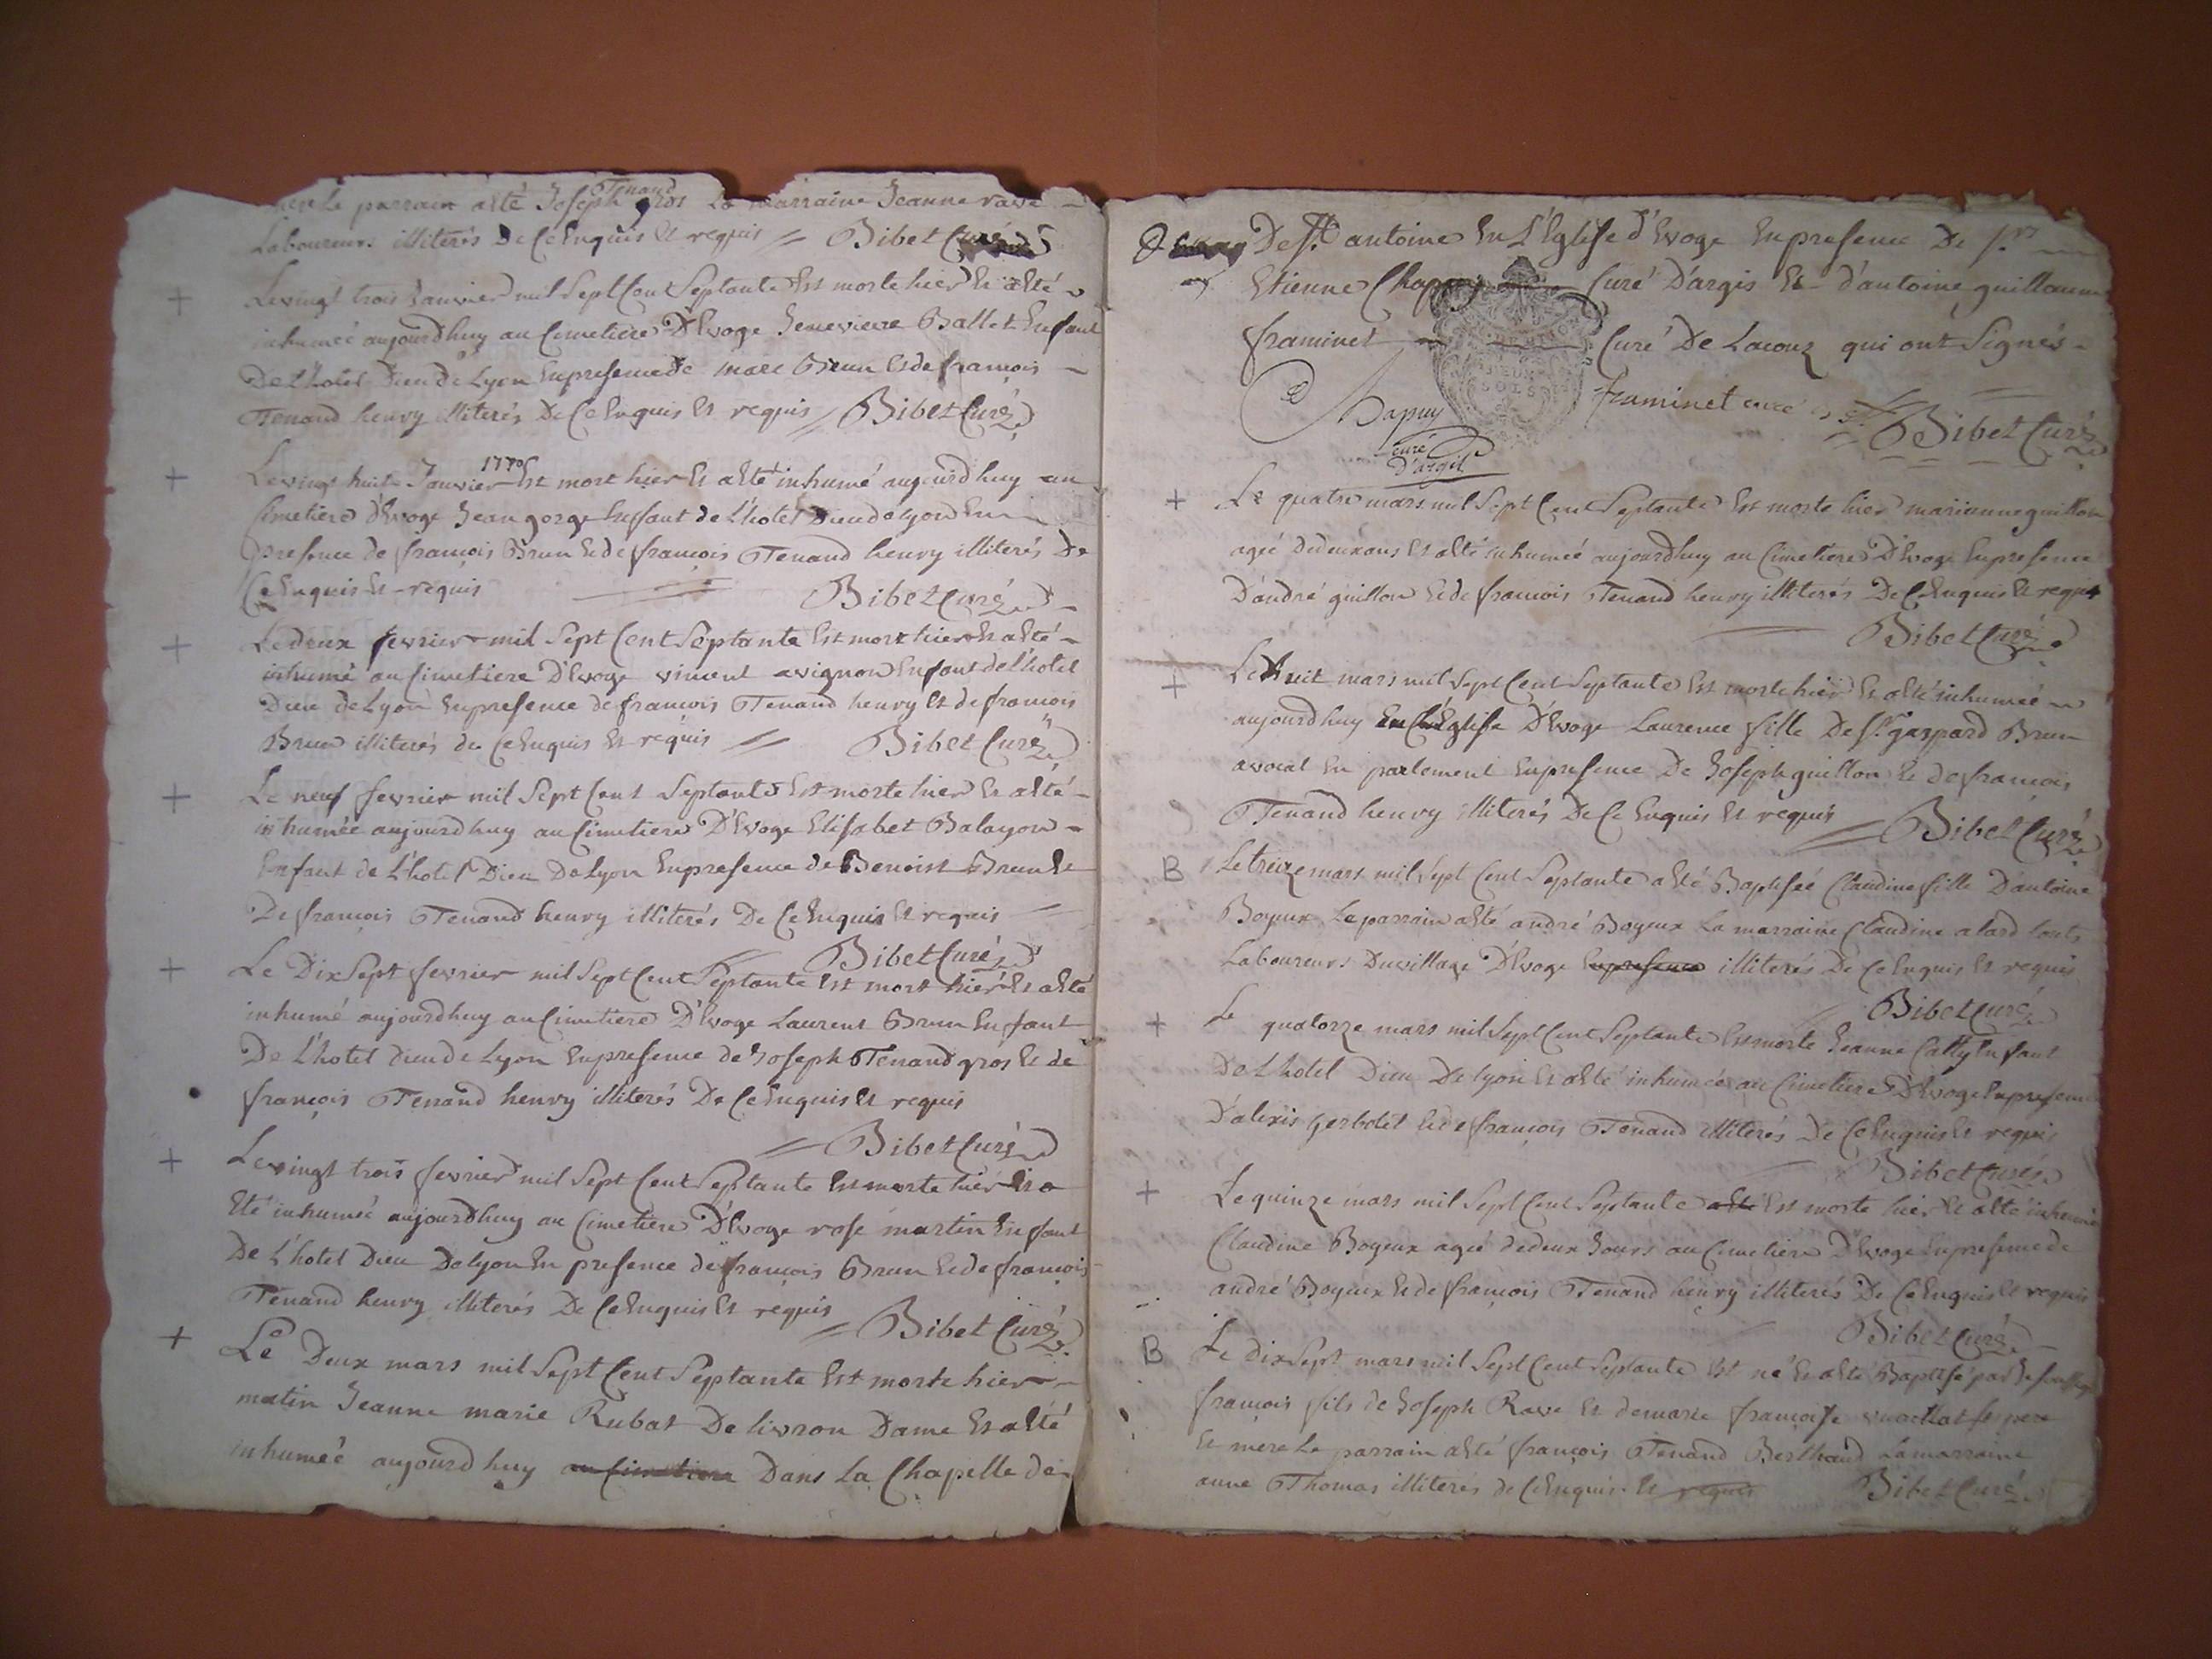 mere Le parrain a été Joseph Tenand gros La marraine Jeanne rave
Laboureurs illiterés De Ce Enquis Et requis Bibet Curé
Le vingt trois Janvier mil Sept Cent Septante Est morte hier Et a été
inhumée aujourdhuy au Cimetiere D'Evoge Genevieve Ballet Enfant
De L'hotel Dieu de Lyon En presence de marc Brun Et de francois
Tenand henry illiterés De Ce Enquis Et requis Bibet Curé
Le vingt huit Janvier 1770 Est mort hier Et a été inhumé aujourdhuy au
Cimetiere d'Evoge Jean gorge Enfant de L'hotel Dieu de lyon En
presence de françois Brun Et de françois Tenand henry illiterés De
Ce Enquis Et requis Bibet Curé
Le deux fevrier mil Sept Cent Septante Est mort hier Et a été
inhumé au Cimetiere D'Evoge vincent avignon Enfant de L'hotel
Dieu de Lyon En presence de francois Tenand henry Et de francois
Brun illiterés de Ce Enquis Et requis Bibet Curé
Le neuf fevrier mil Sept Cent Septante Est morte hier Et a été
inhumée aujourdhuy au Cimetiere D'Evoge Elisabet Balayon
Enfant de L'hotel Dieu De Lyon En presence de Benoist Brun Et
De françois Tenand henry illiterés De Ce Enquis Et requis
Bibet Curé
Le Dix Sept fevrier mil Sept Cent Septante Est mort hier Et a été
inhumé aujourdhuy au Cimetiere D'Evoge Laurent Brun Enfant
De L'hotel Dieu de Lyon En presence de Joseph Tenand gros Et de
françois Tenand henry illiterés De Ce Enquis Et requis
Bibet Curé
Le vingt trois fevrier mil Sept Cent Septante Est morte hier Et a
Eté inhumée aujourdhuy au Cimetiere D'Evoge rose martin Enfant
De L'hotel Dieu De lyon En presence de françois Brun Et de françois
Tenand henry illiterés De Ce Enquis Et requis Bibet Curé
Le Deux mars mil Sept Cent Septante Est morte hier
matin Jeanne marie Rubat De livron Dame Et a été
inhumée aujourd huy au Cimetiere Dans La Chapelle de
De St antoine En L'Eglise d'Evoge En presence De Sr
Etienne Chapuy Curé D'argis Et d'antoine guillaume
framinet Curé De Lacouz qui ont Signés
Chapuy curé D'argil framinet curé Bibet Curé
Le quatre mars mil Sept Cent Septante Est morte hier marianne guillon
ageé de deux ans Et a été inhumée aujourdhuy au Cimetiere D'Evoge En presence
D'andré guillon Et de francois Tenand henry illiterés De Ce Enquis Et requis
Bibet Curé
Le huit mars mil Sept Cent Septante Est morte hier Et a été inhumée
aujourdhuy En L'Eglise D'Evoge Laurence fille De Sr gaspard Brun
avocat En parlement En presence De Joseph guillon Et de francois
Tenand henry illiterés De Ce Enquis Et requis Bibet Curé
B Le treize mars mil Sept Cent Septante a été Baptisée Claudine fille D'antoine
Boyeux Le parrain a été andré Boyeux La marraine Claudine alard touts
Laboureurs Du village D'Evoge En presence illiterés De Ce Enquis Et requis
Bibet Curé
Le quatorze mars mil Sept Cent Septante Est morte Jeanne Catty Enfant
De L'hotel Dieu De lyon Et a été inhumée au Cimetiere D'Evoge En presence
D'alexis gerbolet Et de françois Tenand illiterés De Ce Enquis Et requis
Bibet Curé
Le quinze mars mil Sept Cent Septante a été Est morte hier Et a été inhumée
Claudine Boyeux ageé de deux Jours au Cimetiere D'Evoge En presence de
andré Boyeux Et de françois Tenand henry illiterés De Ce Enquis Et requis
Bibet Curé
B Le dix Sept mars mil Sept Cent Septante Est né Et a été Baptisé par
françois fils de Joseph Rave Et de marie françoise ses pere
Et mere Le parrain a été françois Tenand Berthand La marraine
anne Thomas illiterés de Ce Enquis Et requis Bibet Curé